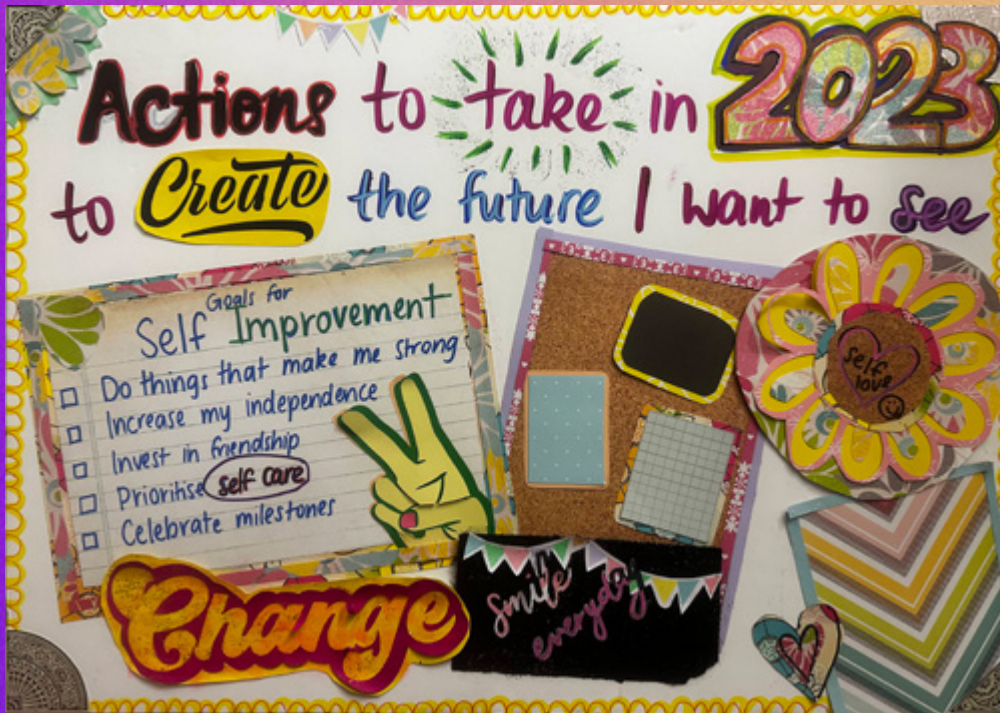 Actions to take in 2023
to Create the future I want to see
Goals for
Self Improvement
Do things that make me strong
Increase my independence
Invest in friendship
Prioritise self care
Celebrate milestones
self
love
Change
Smile
everyday